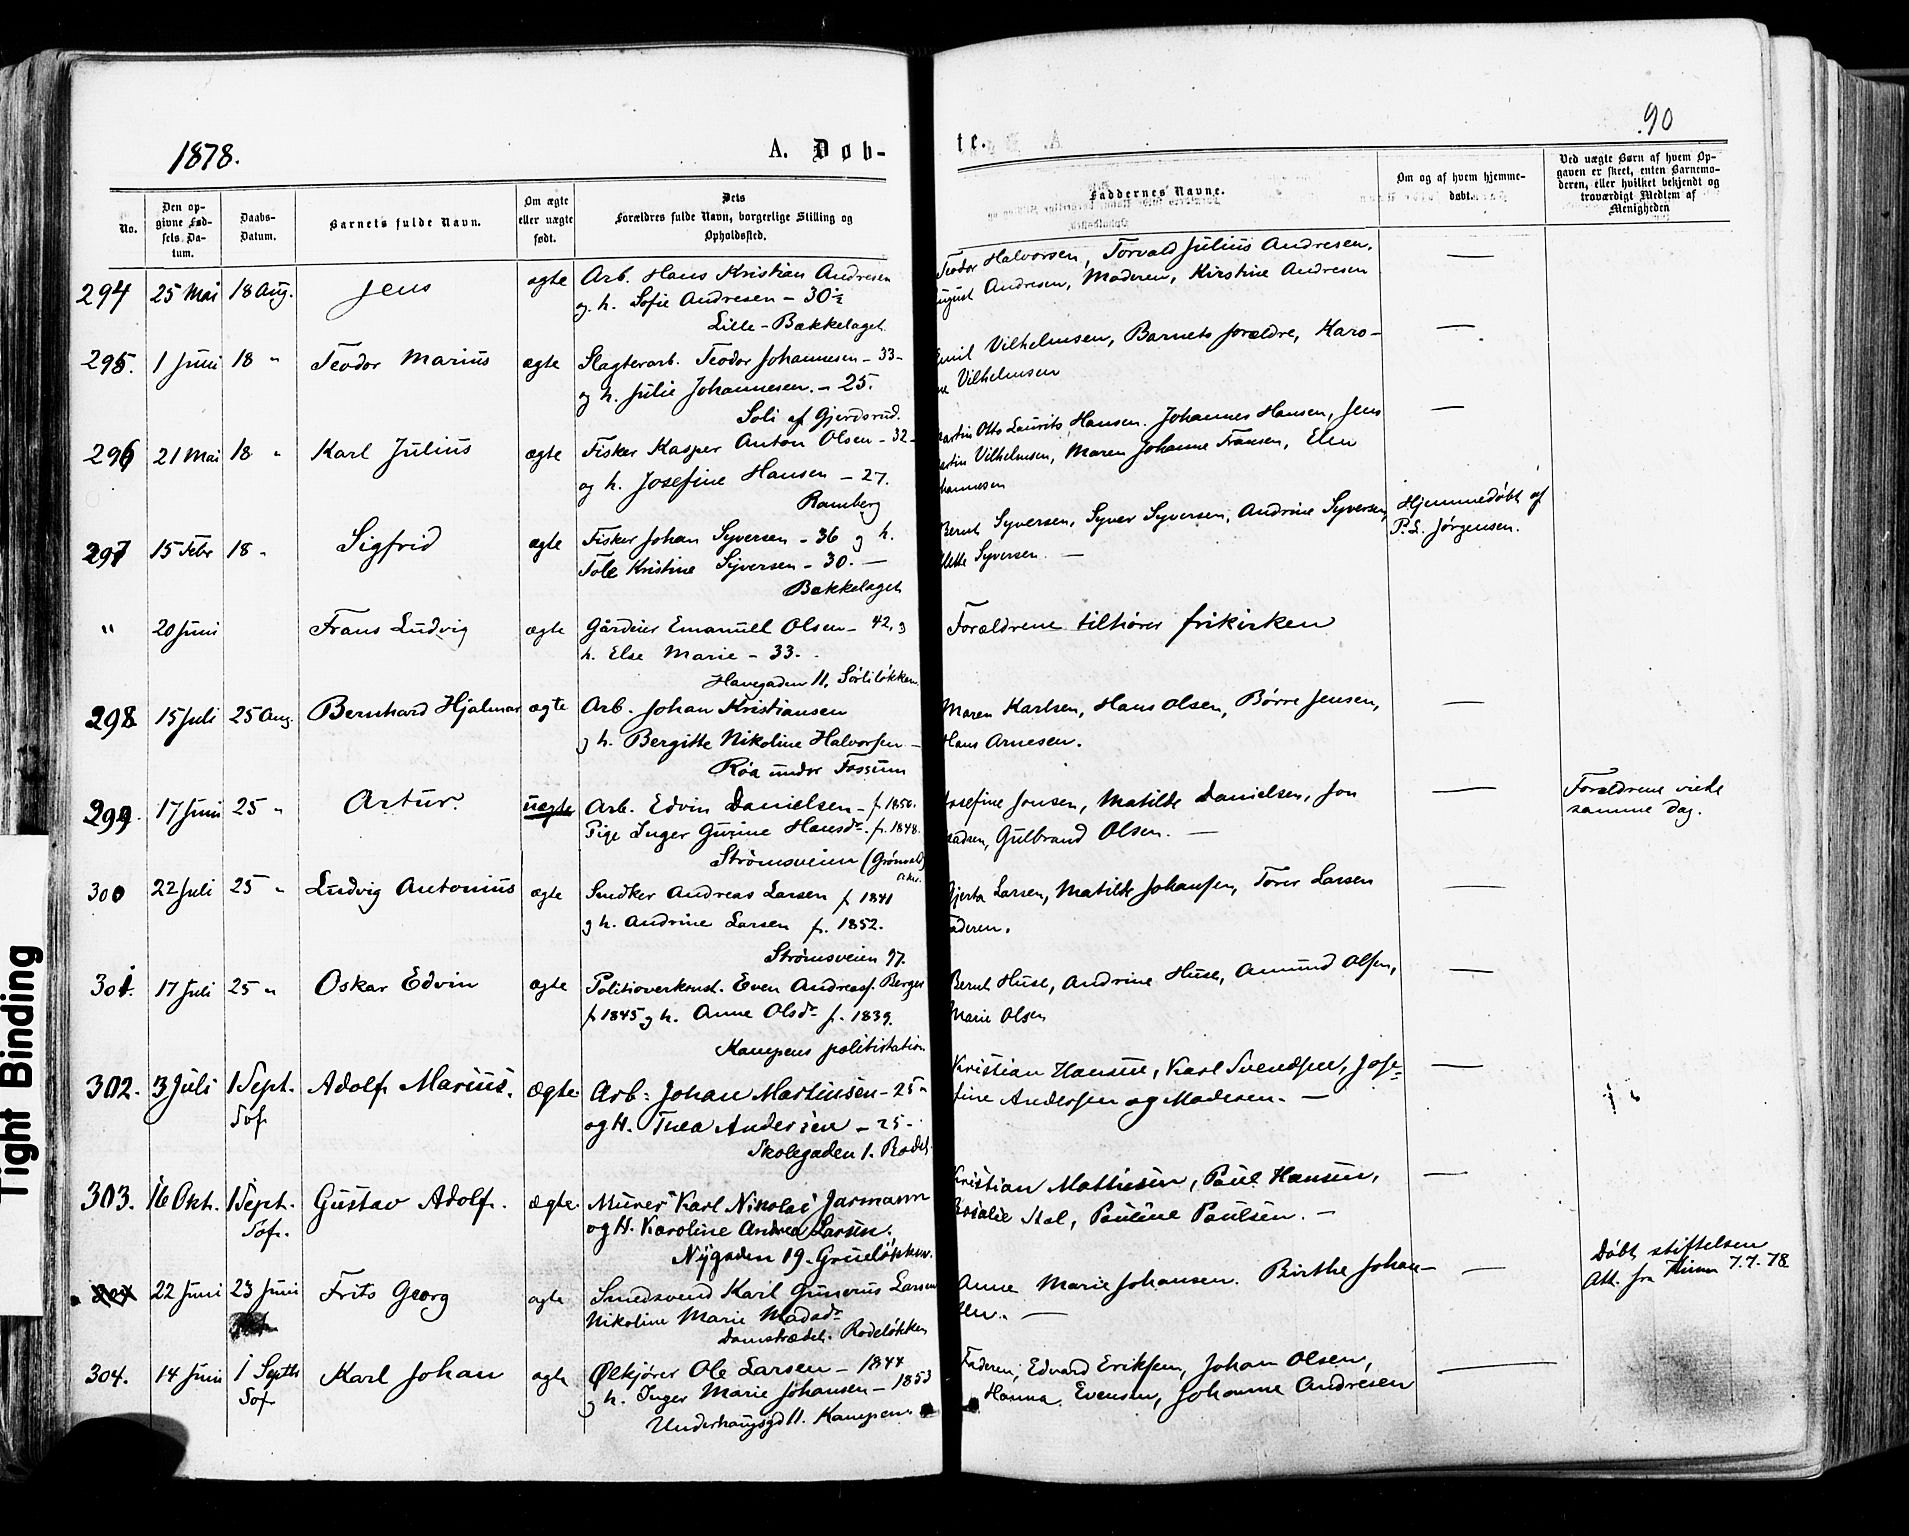 1878.
A. Døb-
te.
90
No.
Den opgivne Fødsels Datum.
Daabs-Datum.
Barnets fulde Navn.
Om ægte eller uægte født.
Dets Forældres fulde Navn, borgerlige Stilling og Opholdssted.
Faddernes Navne.
Om og af hvem hjemmedøbt.
Ved uægte Børn af hvem Opgaven er skeet, enten Barnemoderen, eller hvilket bekjendt og troværdigt Medlem af Menigheden
294 25 Mai 18 Aug. Jens ægte Arb. Hans Kristian Andresen
og h. Sofie Andresen - 30½
Lille-Bækkelaget
Teodor Halvorsen, Torvald Julius Andresen,
August Andresen, Moderen, Kirstine Andresen
295. 1 Juni 18 " Teodor Marius ægte Slagterarb. Teodor Johannesen - 33 -
og h. Julie Johannesen. - 25.
Soli af Gjerdsrud.
Emil Vilhelmsen, Barnets forældre, Karo-
ne Vilhelmsen
296 21 Mai 18 " Karl Julius ægte Fisker Kasper Anton Olsen - 32 -
og h. Josefine Hansen - 27.
Ramberg
Martin Otto Laurits Hansen. Johannes Hansen, Jens
Vilhelmsen, Maren Johanne Fransen, Elen
hannesen
297 15 Febr 18 " Sigfrid ægte Fisker Johan Syversen - 36 og h.
Tole Kristine Syversen - 30. —
Bækkelaget
Bernt Syversen, Syver Syversen, Andrine Syversen,
Syversen. —
Hjemmedøbt af
P. L. Jørgensen.
" 20 Juni Frans Ludvig ægte Gårdeier Emanuell Olsen - 42, og
h. Else Marie - 33.
Havegaden 11, Sørliløkken
Forældrene tilhører frikirken
298 15 Juli 25 Aug. Bernhard Hjalmar ægte Arb. Johan Kristiansen
og h. Bergitte Nikoline Halvorsen -
Røa under Fossum
Maren Karlsen, Hans Olsen, Børre Jensen,
Hans Arnesen.
299. 17 Juni 25 " Artur. uægte Arb. Edvin Danielsen - f 1850.
Pige Inger Gurine Hansdr. f. 1848.
Strømsveien (Grønvold
Josefine Jonsen, Matilde Danielsen, Jon
Gulbrand Olsen. —
Forældrene viede
samme Dag.
300 22 Juli 25 " Ludvig Antonius ægte Snedker Andreas Larsen f 1841
og h. Andrine Larsen f. 1852.
Strømsveien 97.
Larsen, Matilde Johansen, Torer Larsen
Faderen.
301. 17 Juli 25 " Oskar Edvin ægte Politioverkonst. Even Andreas. Berger
f 1845 og h. Anne Olsdr f. 1839.
Kampens politistation
Bernt Huse, Andrine Huse, Amund Olsen,
Marie Olsen
302. 3 Juli 1 Sept. Sof. Adolf Marius. Ægte. Arb: Johan Martinsen - 25 -
og H. Thea Andersen - 25 -
Skolegaden 1. Rodel.
Kristian Hansen, Karl Svendsen, Jose-
fine Andersen og Moderen. —
303. 16 Okt. 1 Sept. Sof. Gustav Adolf. ægte. Murer Karl Nikolai Jarmann
og H. Karoline Andrea Larsen.
Nygaden 19. Grueløkken.
Kristian Mathisen, Paul Hansen,
Rosalie Stal, Pauline Paulsen. —
22 Juni 23 Juni Frits Georg ægte Smedsvend Karl Gunerus Larsen
Nikoline Marie Madsdr
Damstrædet. Rodeløkken
Anne Marie Johansen. Birthe Johan-
sen. —
Døbt stiftelsen
Att. fra 7.7.78
304. 14 Juni 1 Septb Sof. Karl Johan ægte Ølkjører Ole Larsen - 1844
og h. Inger Marie Johansen - 1853
Underhaugsgd 11. Kampen
Faderen, Edvard Eriksen, Johan Olsen,
Hanna Evensen, Johanne Andresen
Tight Binding